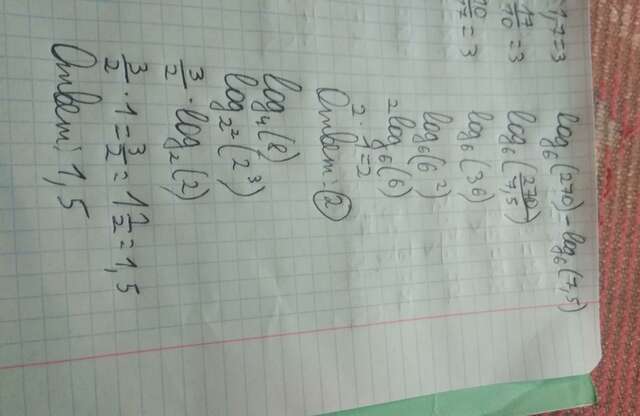 1,7=3
17/70 =3
log₆(270)-log₆(7,5)
log₆(270/7,5)
log₆(36)
log₆(6²)
2log₆(6)
2·1=2
Ответ: 2
log₄(8)
log₂²(2³)
3/2 · log₂(2)
3/2 · 1 = 3/2 = 1 1/2 = 1,5
Ответ: 1,5